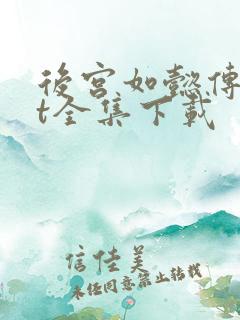 後宮如懿傳
t全集下載
信佳美
未经同意禁止转载